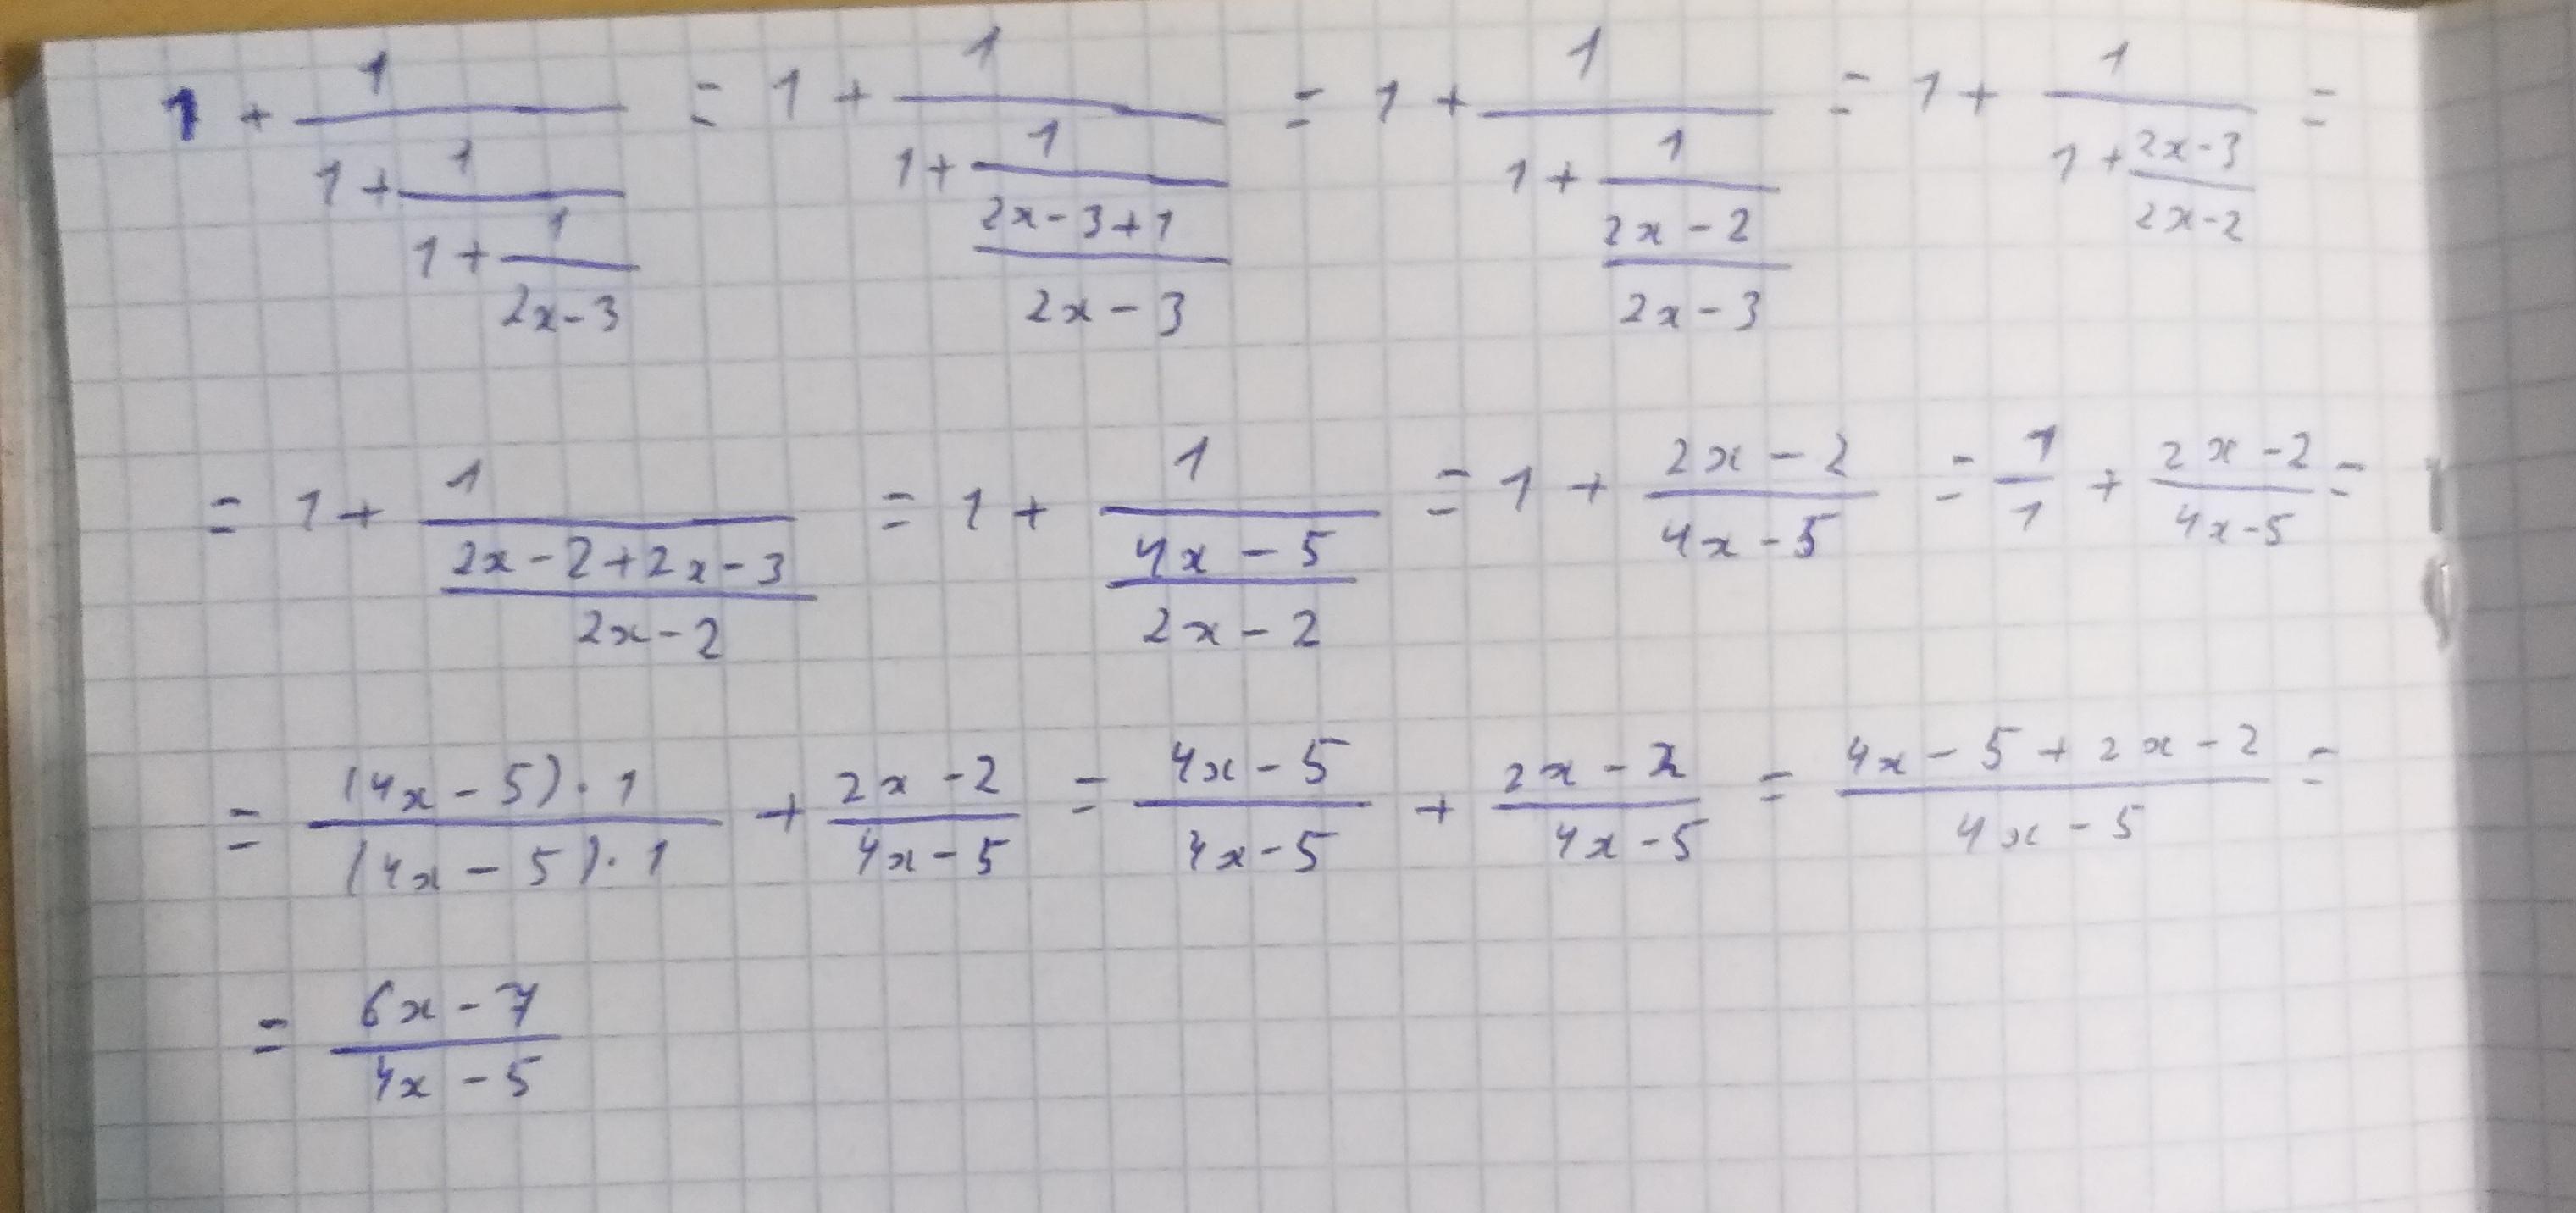 1 + \frac{1}{1+\frac{1}{1+\frac{1}{2x-3}}} = 1 + \frac{1}{1+\frac{1}{\frac{2x-3+1}{2x-3}}} = 1 + \frac{1}{1+\frac{1}{\frac{2x-2}{2x-3}}} = 1 + \frac{1}{1+\frac{2x-3}{2x-2}} =
= 1 + \frac{1}{\frac{2x-2+2x-3}{2x-2}} = 1 + \frac{1}{\frac{4x-5}{2x-2}} = 1 + \frac{2x-2}{4x-5} = \frac{1}{1} + \frac{2x-2}{4x-5} =
= \frac{(4x-5)\cdot 1}{(4x-5)\cdot 1} + \frac{2x-2}{4x-5} = \frac{4x-5}{4x-5} + \frac{2x-2}{4x-5} = \frac{4x-5+2x-2}{4x-5} =
= \frac{6x-7}{4x-5}